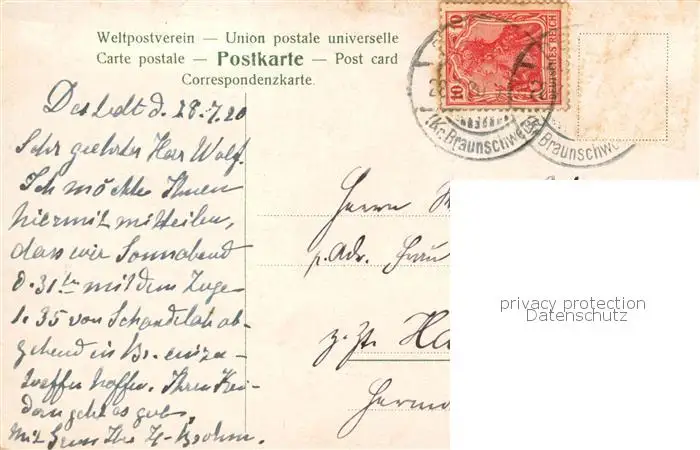 Weltpostverein — Union postale universelle
Carte postale — Postkarte — Post card
Correspondenzkarte.
10 10
DEUTSCHES REICH
(Kr. Braunschwe
Braunschwe
Destedt d. 28.7.20
Sehr geehrter Herr Wolf.
Ich möchte Ihnen
hiermit mitteilen,
dass wir Sonnabend
d. 31ten mit dem Zuge
1.35 von Schandelah ab-
gehend in Br. einzu-
treffen hoffen. Ihren Kin-
dern geht es gut,
Mit Ihr H. Brohm.
Herrn
p. Adr. Frau
z. Zt. Ha
Herm
privacy protection
Datenschutz